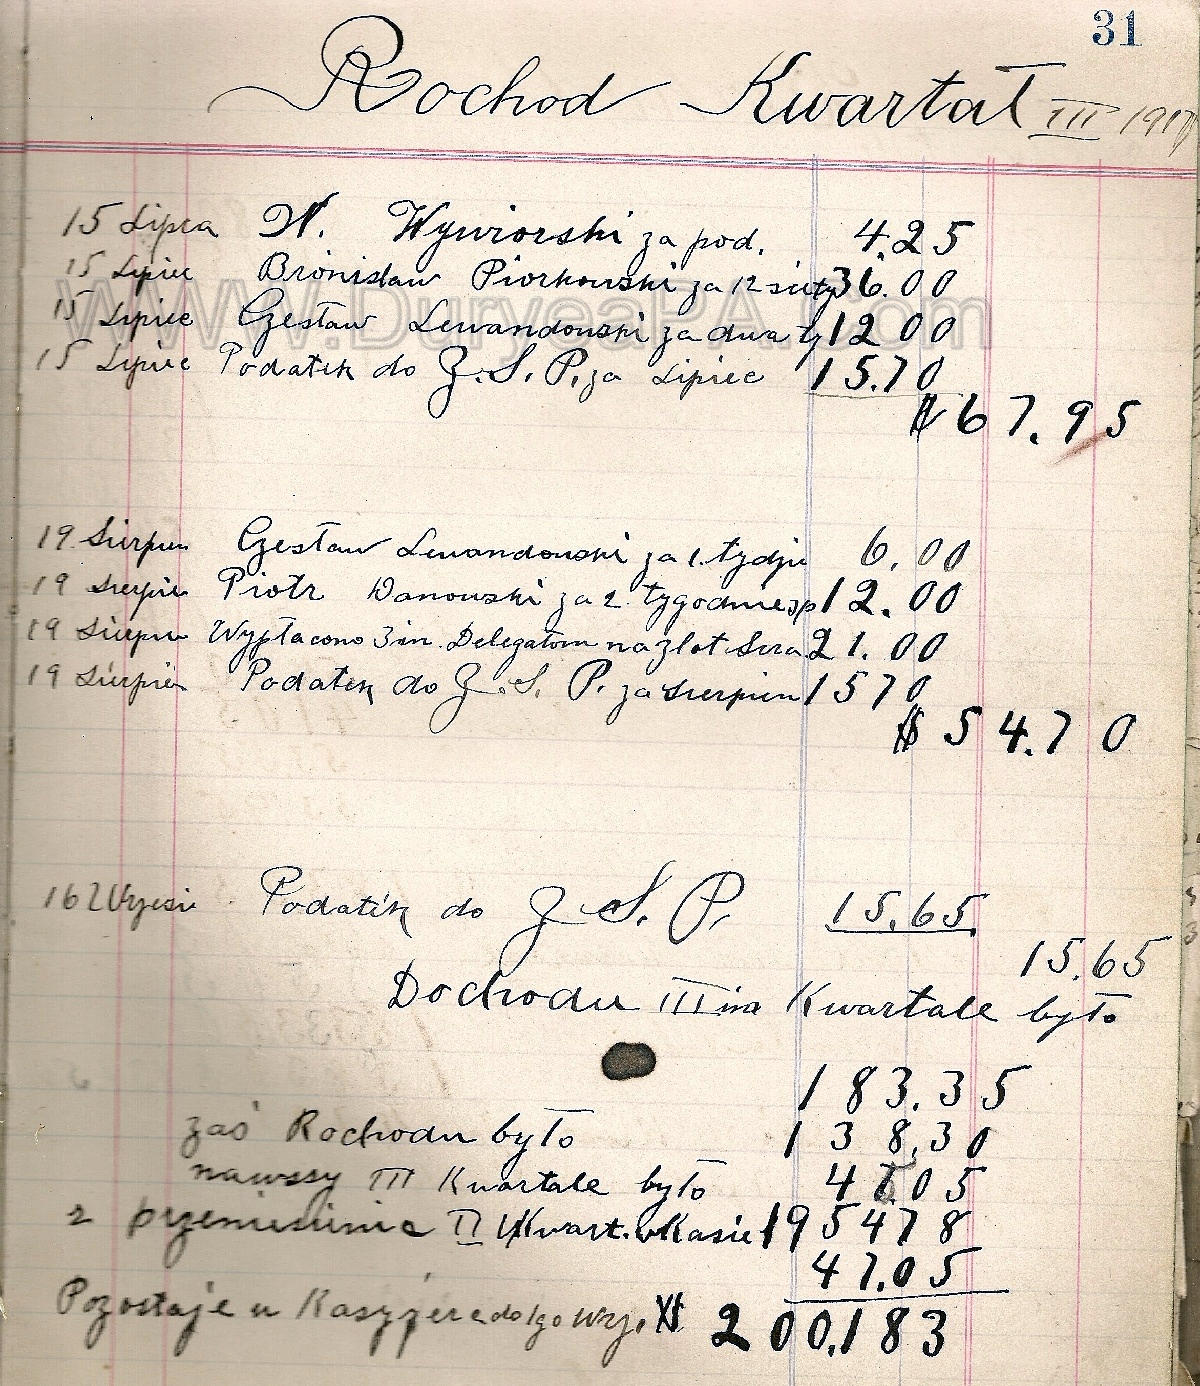 31
Rochod Kwartał III 1917
15 Lipca W. Wywiorski za pod. 4.25
15 Lipiec Bronisław Piorkowski za 12 36.00
15 Lipiec Czesław Lewandowski za dwa ty 12 00
15 Lipiec Podatek do Z. S. P. za Lipiec 15.70
$ 67.95
19 Sierpien Czesław Lewandowski za 1. tydzie 6.00
19 Sierpien Piotr Danowski za 2 tygodnie 12.00
19 Sierpien Wypłacono 3 im. Delegatom na zlot 21.00
19 Sierpien Podatek do Z. S. P. za Sierpien 15 70
$ 54.70
16 Wrzesie Podatek do Z S. P. 15.65
15.65
Dochodu III im Kwartale było
183.35
zaś Rochodu było 138.30
III Kwartale było 4 05
z przeniesienia II Kwart. w Kasie 1954 78
47.05
Pozostaje u Kasyjera do 1go Wrz. $ 200.183
WWW.DuryeaPA.com